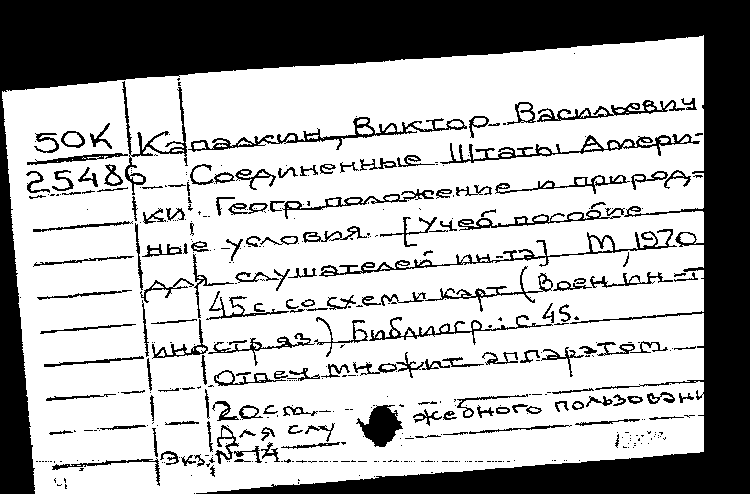 50К Капалкин, Виктор Васильевич.
25486 Соединенные Штаты Амери-
ки. Геогр. положение и природ-
ные условия. [Учеб. пособие
для слушателей ин-та] М, 1970
45 с. со схем и карт (Воен. ин-т
иностр яз.) Библиогр.: с. 45.
Отпеч множит аппаратом
20 см.
Для слу жебного пользовани
Экз № 14.
4